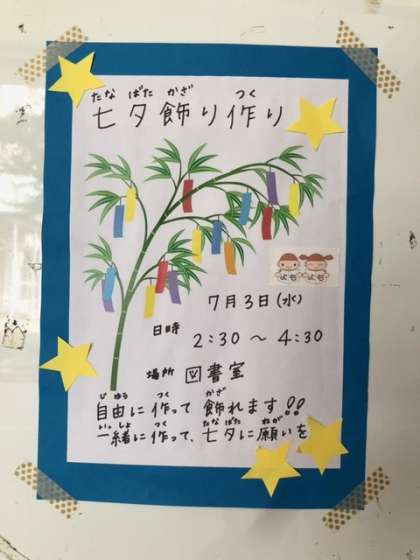 たなばた かざ つく
七夕飾り作り
7月3日(水)
日時 2:30〜4:30
場所 図書室
じゆう つく かざ
自由に作って飾れます!!
いっしょ つく たなばた ねが
一緒に作って、七夕に願いを